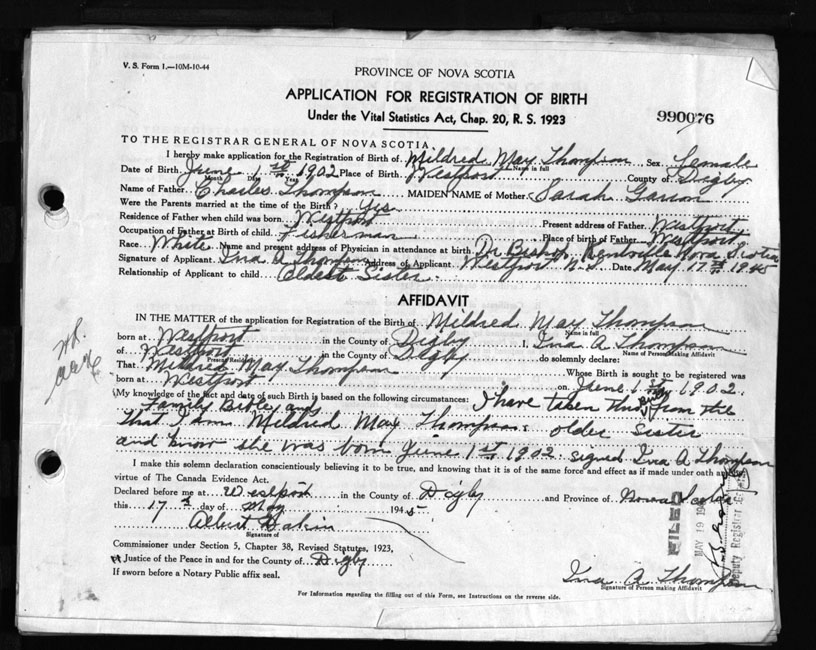 V. S. Form 1.—10M-10-44
PROVINCE OF NOVA SCOTIA
APPLICATION FOR REGISTRATION OF BIRTH
Under the Vital Statistics Act, Chap. 20, R. S. 1923
990076
TO THE REGISTRAR GENERAL OF NOVA SCOTIA.
I hereby make application for the Registration of Birth of Mildred May Thompson Sex Female
Name in full
Date of Birth June 1st 1902 Place of Birth Westport County of Digby
Month Day Year
Name of Father Charles Thompson MAIDEN NAME of Mother Sarah
Were the Parents married at the time of Birth? Yes
Residence of Father when child was born Westport Present address of Father Westport
Occupation of Father at Birth of child Fisherman Place of Birth of Father Westport
Race White Name and present address of Physician in attendance at birth Dr Bishop, Kentville Nova Scotia
Signature of Applicant Ina A Thompson Address of Applicant Westport N.S. Date May 17th 1945
Relationship of Applicant to child Oldest Sister
AFFIDAVIT
IN THE MATTER of the application for Registration of the Birth of Mildred May Thompson
Name in full
born at Westport in the County of Digby I, Ina A Thompson
Name of Person Making Affidavit
of Westport in the County of Digby do solemnly declare:
Present Residence
That Mildred May Thompson Whose Birth is sought to be registered was
born at Westport on June 1st 1902.
My knowledge of the fact and date of such Birth is based on the following circumstances: I have taken this from the
Family Bible and
that I am Mildred May Thompson older Sister
and know she was born June 1st 1902 signed Ina A Thompson
I make this solemn declaration conscientiously believing it to be true, and knowing that it is of the same force and effect as if made under oath and by
virtue of The Canada Evidence Act.
Declared before me at Westport in the County of Digby and Province of Nova Scotia
this 17 day of May 1945.
Albert Dakin
Signature of
Commissioner under Section 5, Chapter 38, Revised Statutes, 1923,
Justice of the Peace in and for the County of Digby
If sworn before a Notary Public affix seal.
FILED
MAY 19
Deputy Registrar
Ina A Thompson
Signature of Person making Affidavit
For Information regarding the filling out of this Form, see Instructions on the reverse side.